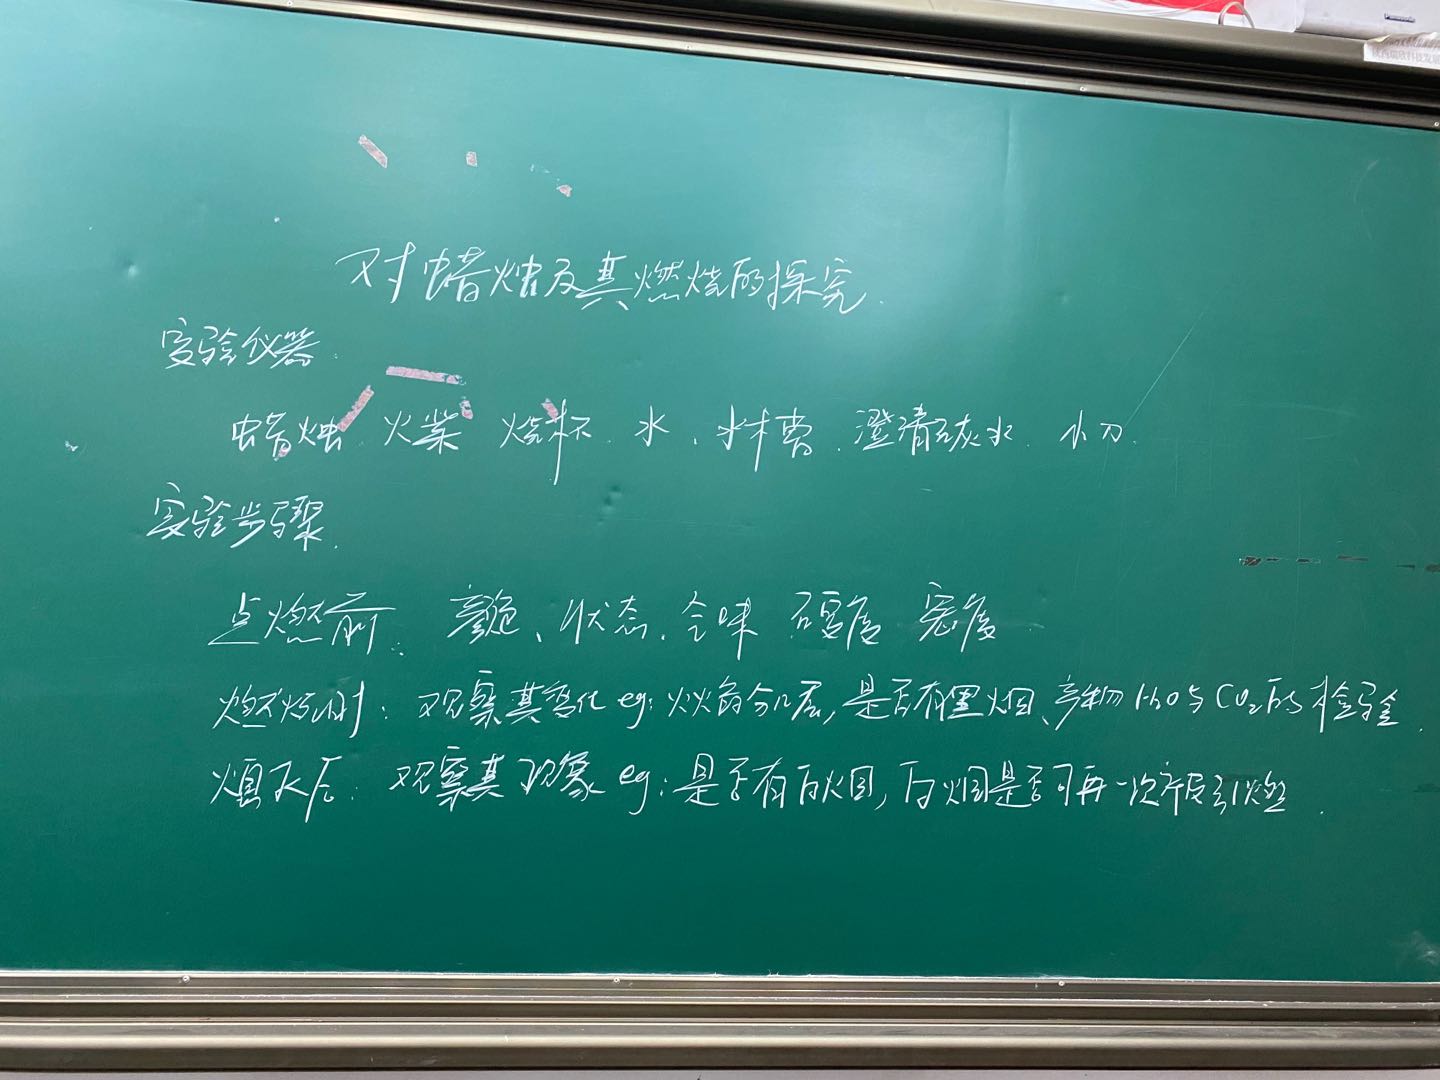 Panasonic
对蜡烛及其燃烧的探究.
实验仪器:
蜡烛 火柴 烧杯. 水、水槽. 澄清石灰水. 小刀.
实验步骤.
点燃前: 颜色、状态、气味 硬度 密度.
燃烧时: 观察其变化 eg: 火焰分几层, 是否有黑烟、产物H₂O与CO₂的检验.
熄灭后: 观察其现象 eg: 是否有白烟, 白烟是否可再一次被引燃.